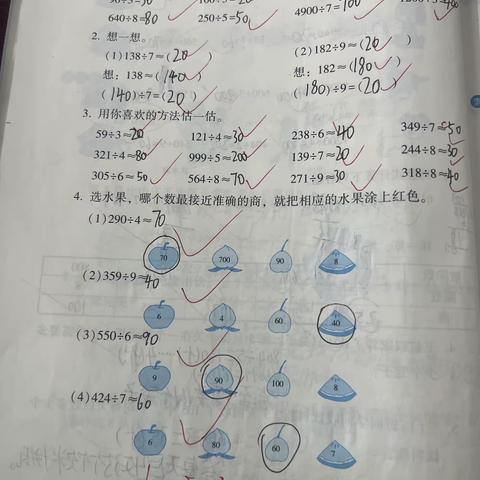 640÷8=80 250÷5=50 4900÷7=700
2. 想一想。
(1)138÷7≈(20) (2)182÷9≈(20)
想：138≈(140) 想：182≈(180)
(140)÷7=(20) (180)÷9=(20)
3. 用你喜欢的方法估一估。
59÷3≈20 121÷4≈30 238÷6≈40 349÷7≈50
321÷4≈80 999÷5≈200 139÷7≈20 244÷8≈30
305÷6≈50 564÷8≈70 271÷9≈30 318÷8≈40
4. 选水果，哪个数最接近准确的商，就把相应的水果涂上红色。
(1)290÷4≈70
70 700 90 8
(2)359÷9≈40
6 4 60 40
(3)550÷6≈90
9 90 100 8
(4)424÷7≈60
6 80 60 7